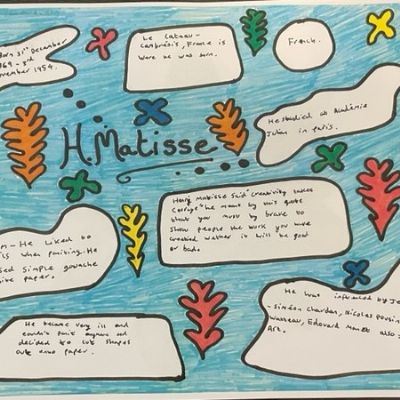 Born 31st December
1869 - 3rd
November 1954.
Le Cateau-
Cambrésis, France is
were he was born.
French.
He studied at Académie
Julian in Paris.
H.Matisse
Henry Matisse said "creativity takes
corrage" he meant by this quote
that you must by brave to
show people the work you have
created wether it will be good
or bad.
m- He liked to
is when painting. He
sed simple gouache
ite paper.
He was influenced by Je
-Siméon chardan, Nicolas Poussin
Watteau, Edouard Manet also
Art.
He became very ill and
couldn't paint anymore and
decided to cut shapes
out onto paper.